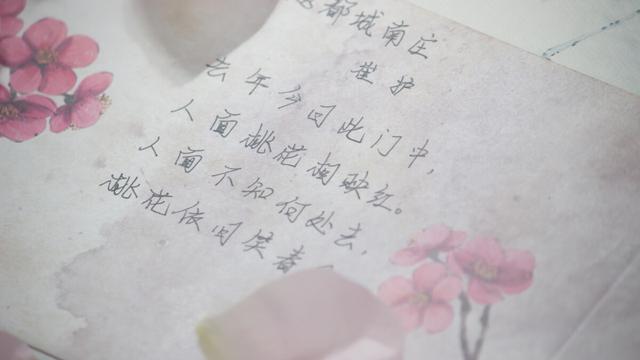 都城南庄
崔护
去年今日此门中,
人面桃花相映红。
人面不知何处去,
桃花依旧笑春